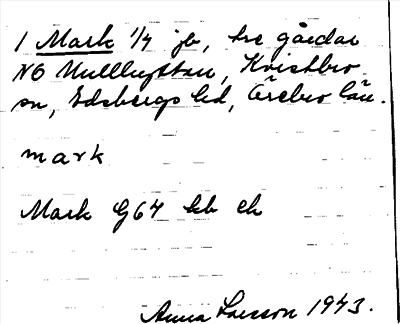 1 Mark 1/4 jb, tre gårdar
NO Mullhyttan, Kvistbro
sn, Edsbergs hd, Örebro län.
mark
Mark G64 kb eh
Anna Larsson 1943.